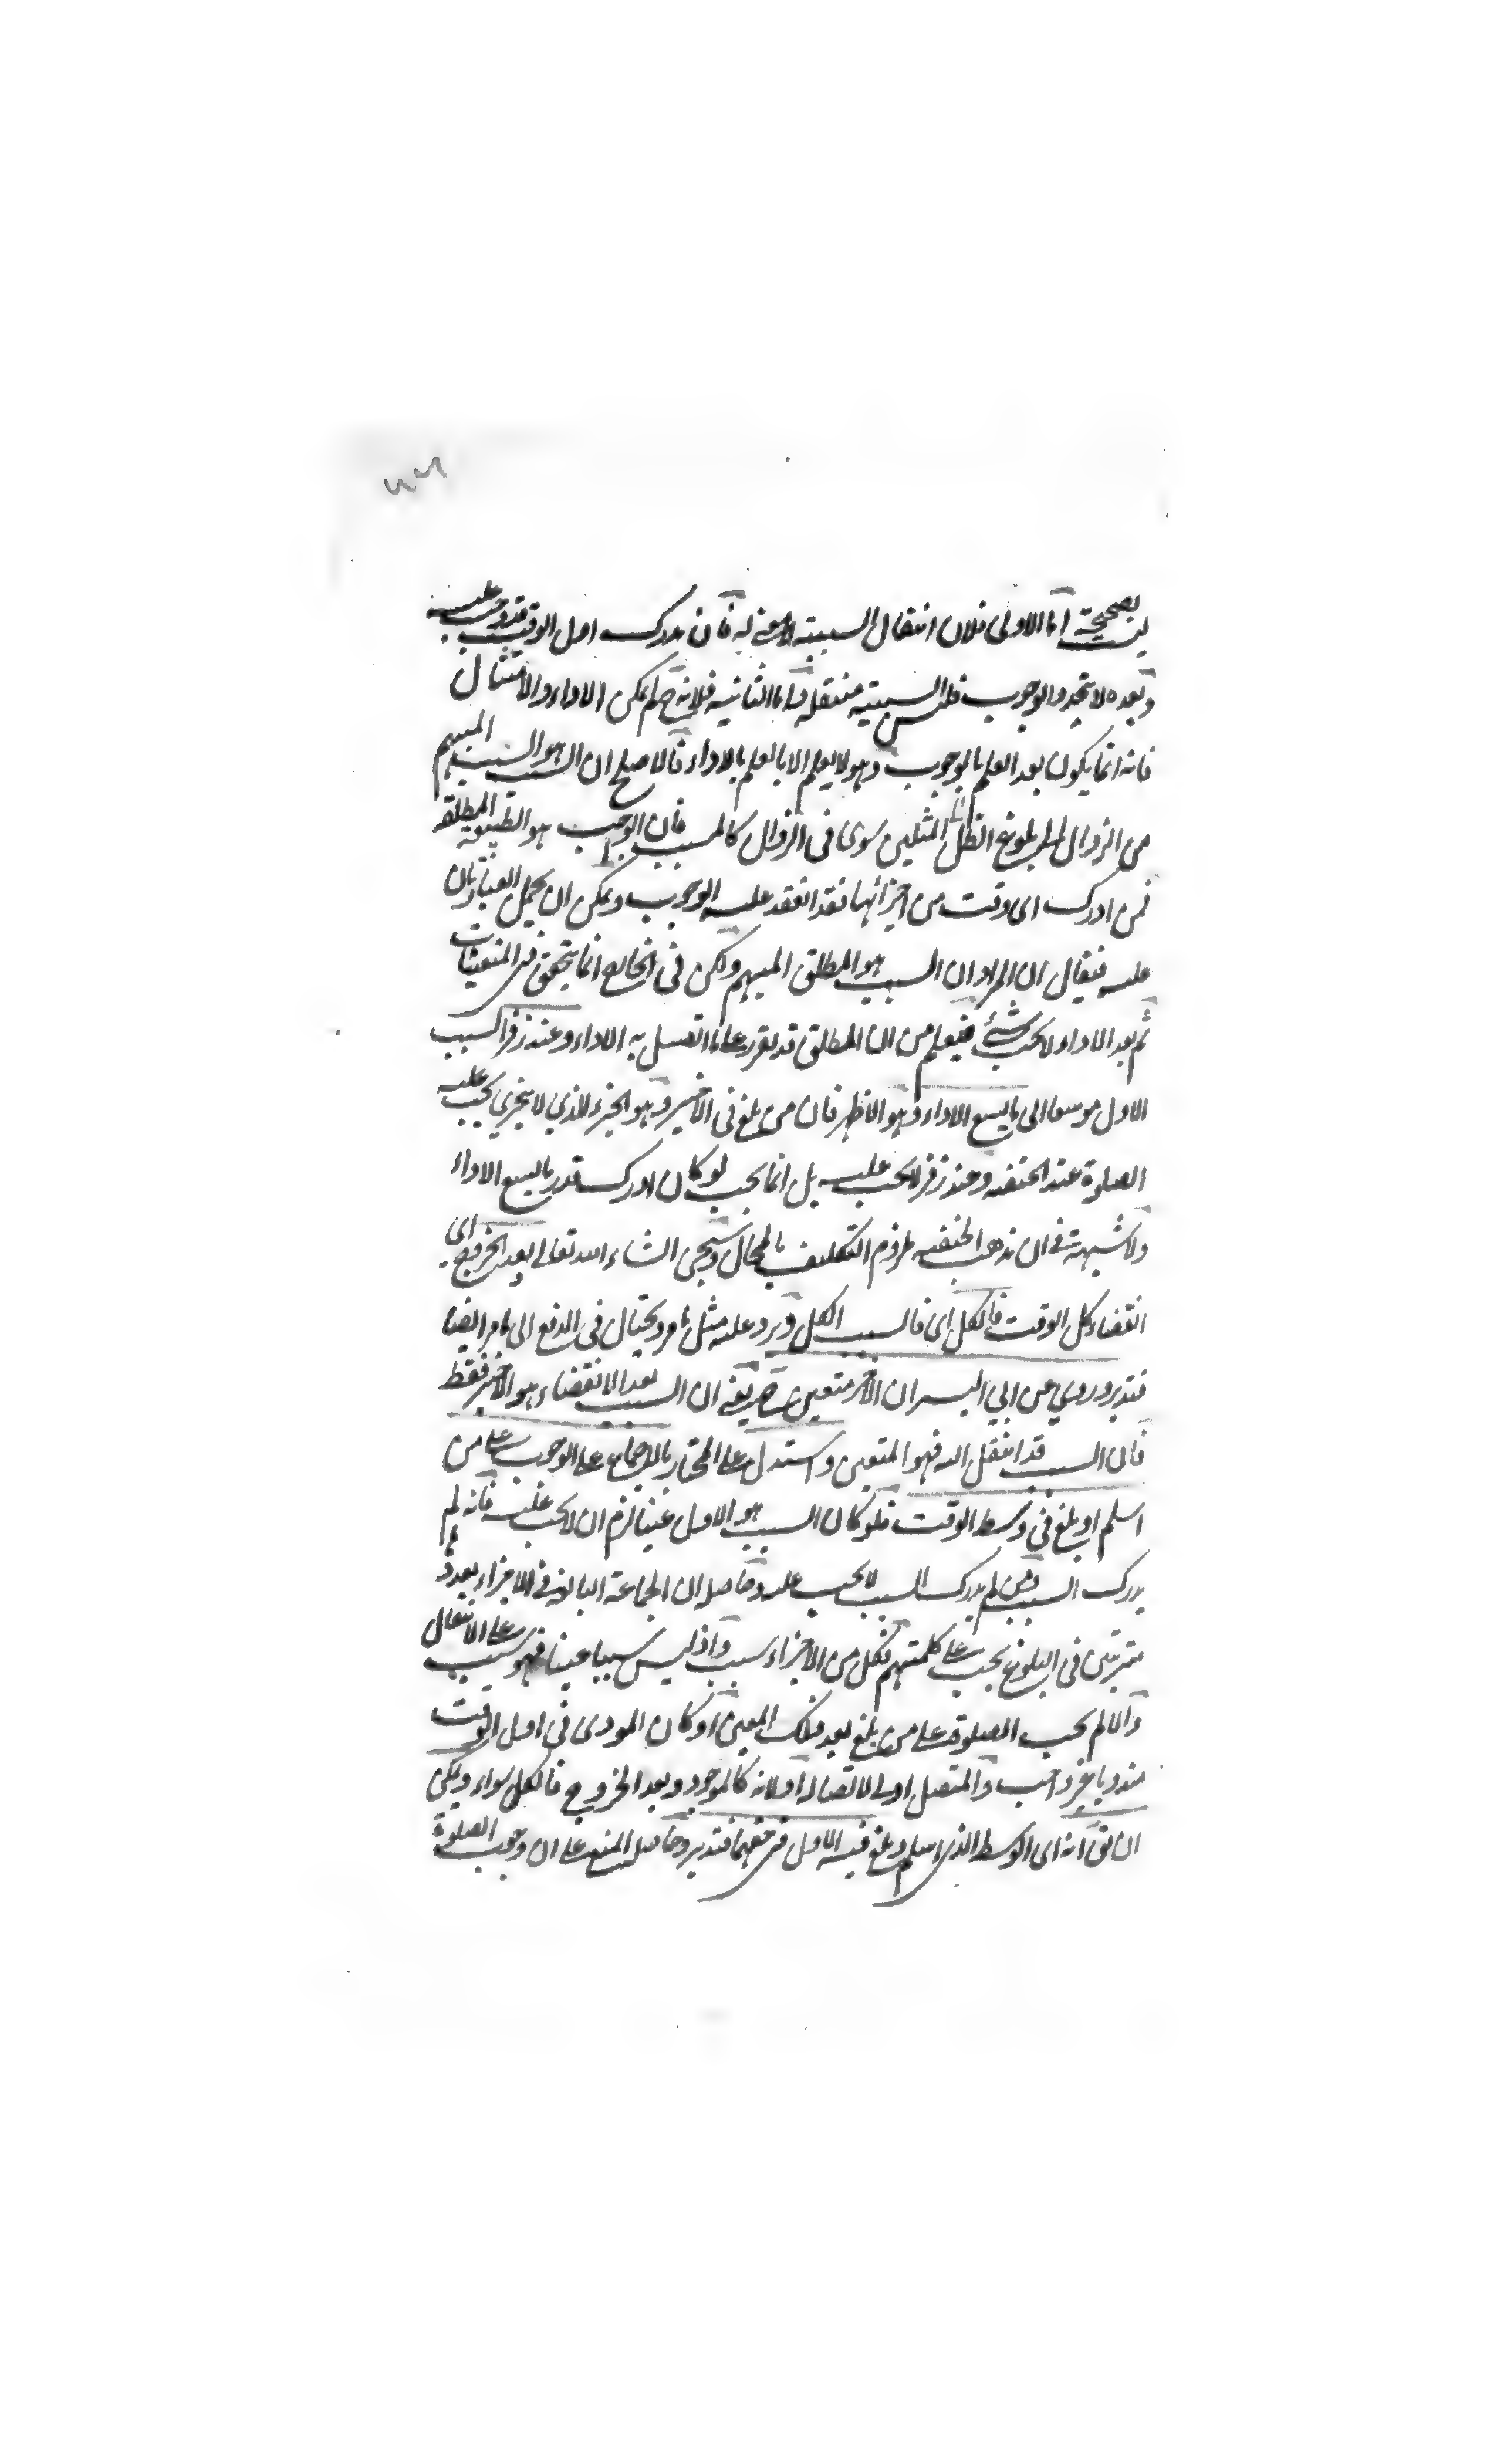 ليست بصحيحة اما الاولى فلان انتقال السببية لا معنى له فان مدرك اول الوقت قد وجب عليه
وبعده لا يتجدد الوجوب فليس السببية منتقلة واما الثانية فلانه ح لم يمكن الاداء والامتثال
فانه انما يكون بعد العلم بالوجوب وهو لا يعلم الا بالعلم بالاداء فالاصلح ان السبب هو السبب المبهم
من الزوال الى بلوغ الظل المثلين سوى فى الزوال كالمسبب فان الواجب هو الطبيعة المطلقة
فمن ادرك اى وقت من اجزائها فقد انعقد عليه الوجوب ويمكن ان يحمل العبارتان
عليه فيقال ان المراد ان السبب هو المطلق المبهم ولكن فى الخارج انما يتحقق فى المتعينات
ثم بعد الاداء لا يجب شئ فيعلم من ان المطلق قد تقرر على ما اتصل به الاداء وعند زفر السبب
الاول موسعا الى ما يسع الاداء وهو الاظهر فان من بلغ فى الاخير وهو الجزء الذي لا يتجزى يجب عليه
الصلوة عند الحنفيه وعند زفر لا يجب عليه بل انما يجب لو كان ادرك قدر ما يسع الاداء
ولا شبهة فى ان مذهب الحنفيه يلزم التكليف بالمحال وسيجى انشاء الله تعالى وبعد الخروج اى
انقضاء كل الوقت فالكل اى فالسبب الكل ويرد عليه مثل ما مر ويحتال فى الدفع الى ما مر ايضا
فتدبر وروي عن ابي اليسر ان الاخر متعين ح يعنى ان السبب بعد الانقضاء هو الاخير فقط
فان السبب قد انتقل اليه فهو المتعين واستدل على المختار بالاجماع على الوجوب على من
اسلم او بلغ في وسط الوقت فلو كان السبب هو الاول عينا لزم ان لا يجب عليه فانه لم
يدرك السبب ومن لم يدرك السبب لا يجب عليه وحاصله ان الجماعة البالغة فى الاجزاء بعدد
مترتبين فى البلوغ يجب على كلهم فكل من الاجزاء سبب واذ ليس سببا عينا فهو سبب على الانتقال
والا لم يجب الصلوة على من بلغ بعد ذلك المعين او كان المودى فى اول الوقت
مندوبا غير واجب والمتصل اولى لاتصاله اولانه كالموجود وبعد الخروج فالكل سواء ويمكن
ان يق انه اى الوسط الذى اسلم وبلغ فيه الاول فى حقهما فتدبر وحاصله المنع على ان وجوب الصلوة